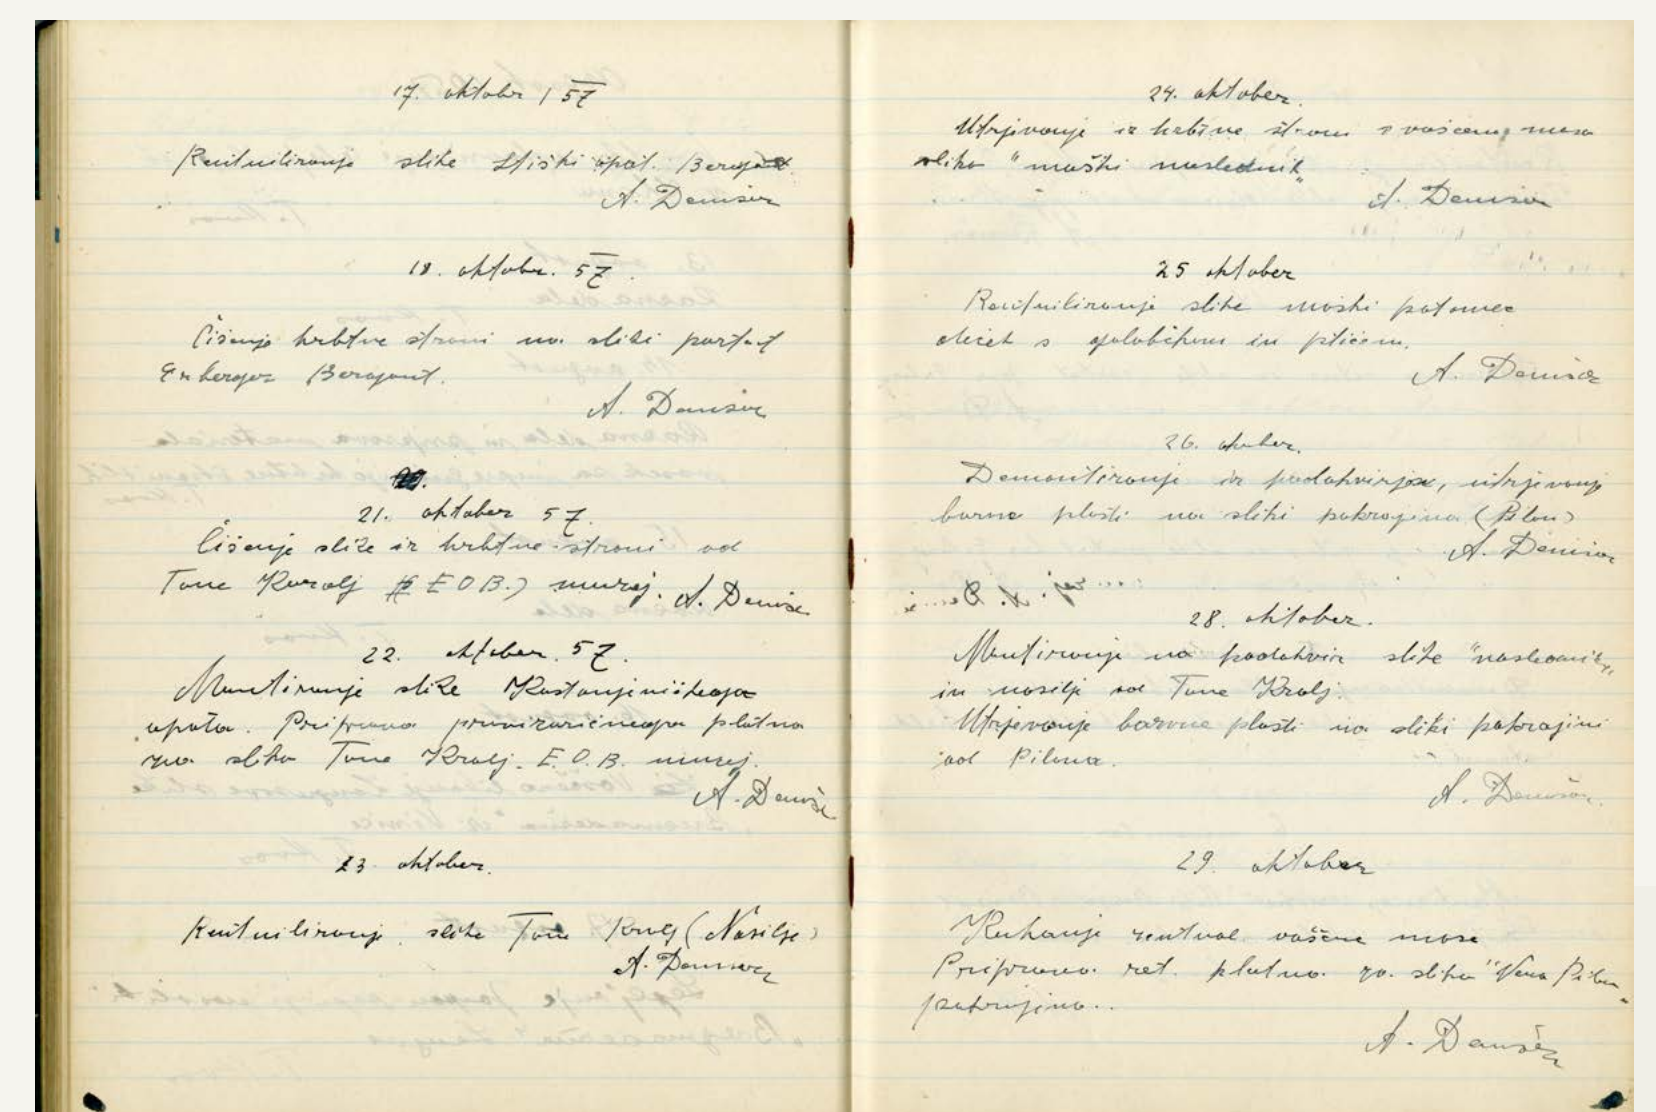 17. oktober / 57
Rentuiliranje slike Stiški opat. Bergant.
A. Demšar
18. oktober. 57.
Čišenje hrbtne strani na sliki portret
Erberger Bergant.
A. Demšar
21. oktober 57.
Čišenje slike iz hrbtne strani od
Tone Kralj E O B.) muzej. A. Demšar
22. oktober. 57.
Montiranje slike Kostanjeviškega
opata. Priprava platna
za sliko Tone Kralj. E. O. B. muzej.
A. Demšar
23. oktober.
Rentuiliranje slike Tone Kralj (Nasilje)
A. Demšar
24. oktober.
Utrjevanje iz hrbtne strani z voščeno maso
sliko "moški naslednik"
A. Demšar
25 oktober
Rentuiliranje slike moški potomec
deček s golobčkom in ptičem.
A. Demšar
26. oktober.
Demontiranje iz podokvirja, utrjevanje
barvne plasti na sliki pokrajina (Pilon)
A. Demšar
28. oktober.
Montiranje na podokvir slike "naslednik"
in nasilje od Tone Kralj.
Utrjevanje barvne plasti na sliki pokrajini
od Pilona.
A. Demšar.
29. oktober
Kuhanje rentual. voščene mase
Priprava ret. platna za sliko "Veno Pilon
pokrajina..
A. Demšar